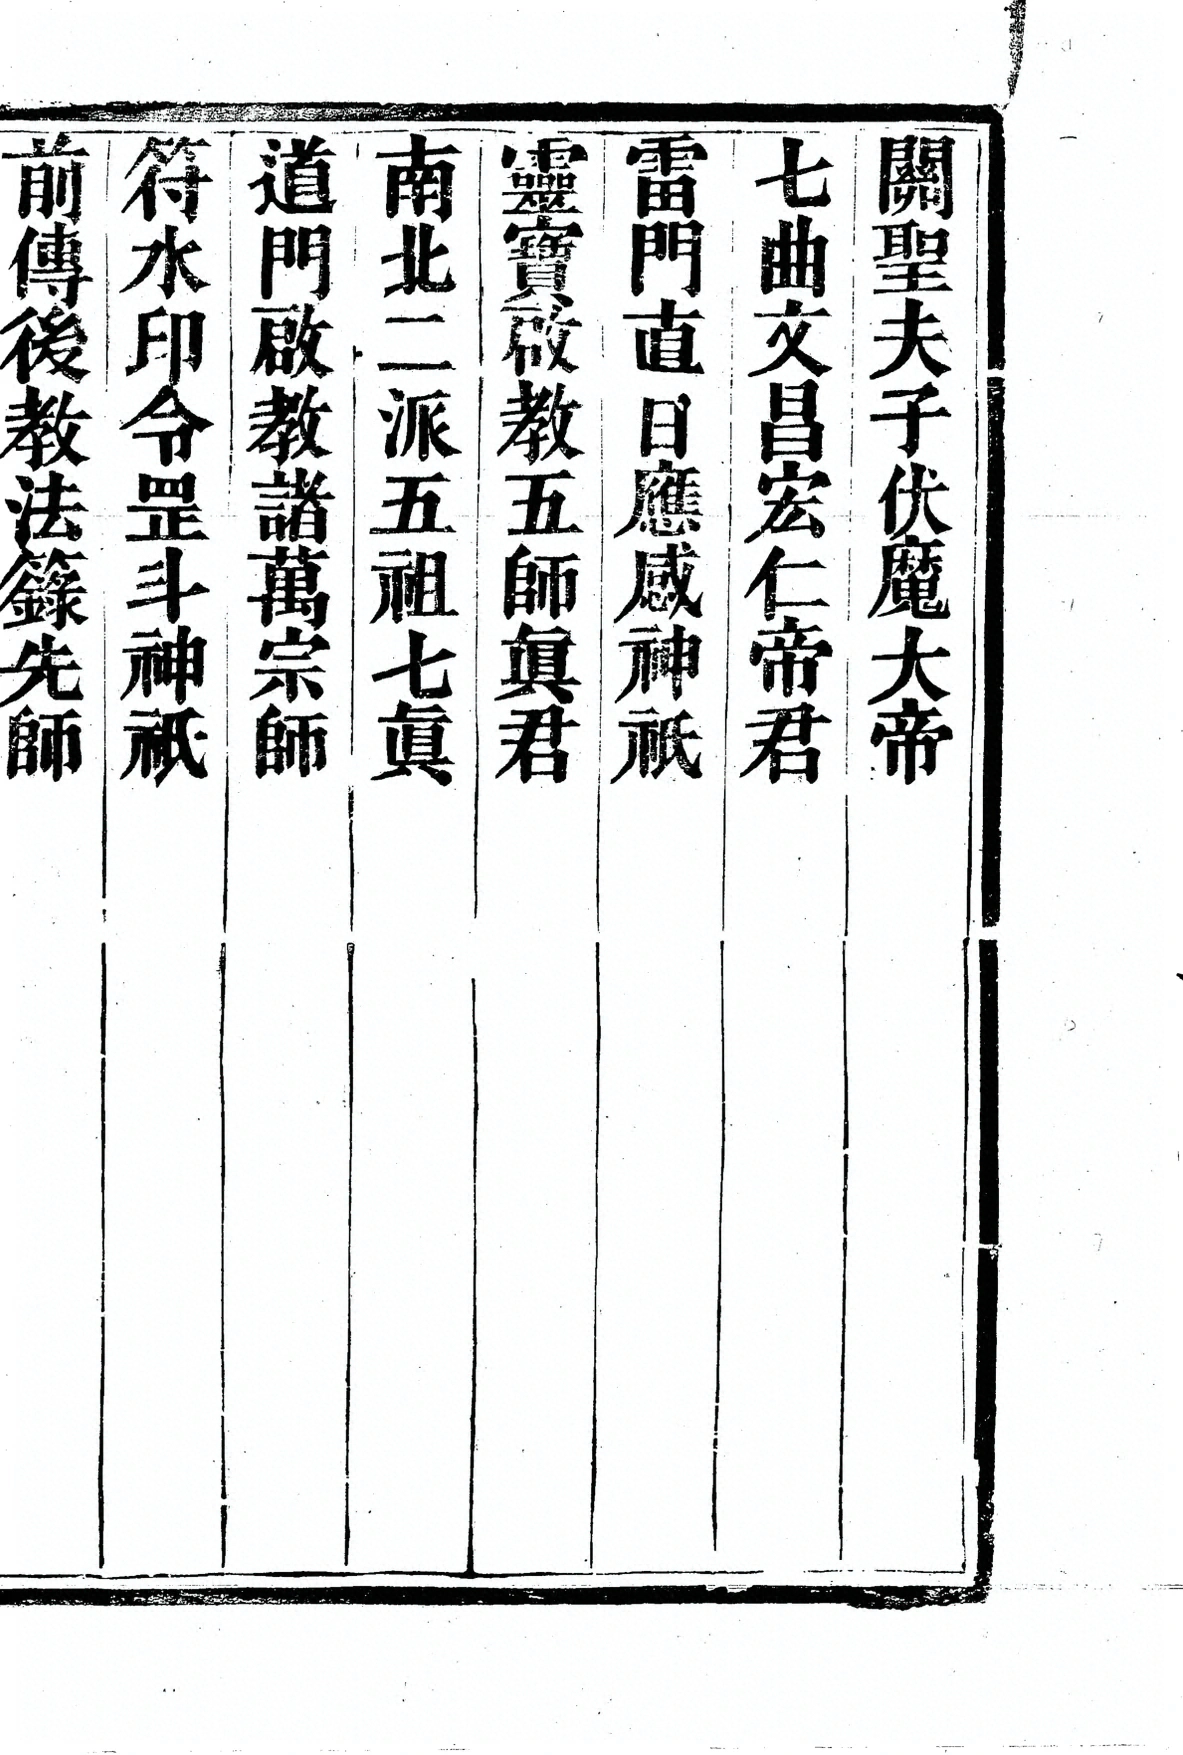 關聖夫子伏魔大帝
七曲文昌宏仁帝君
雷門直日應感神祇
靈寶啟教五師眞君
南北二派五祖七眞
道門啟教諸萬宗師
符水印令罡斗神祇
前傳後教法籙先師